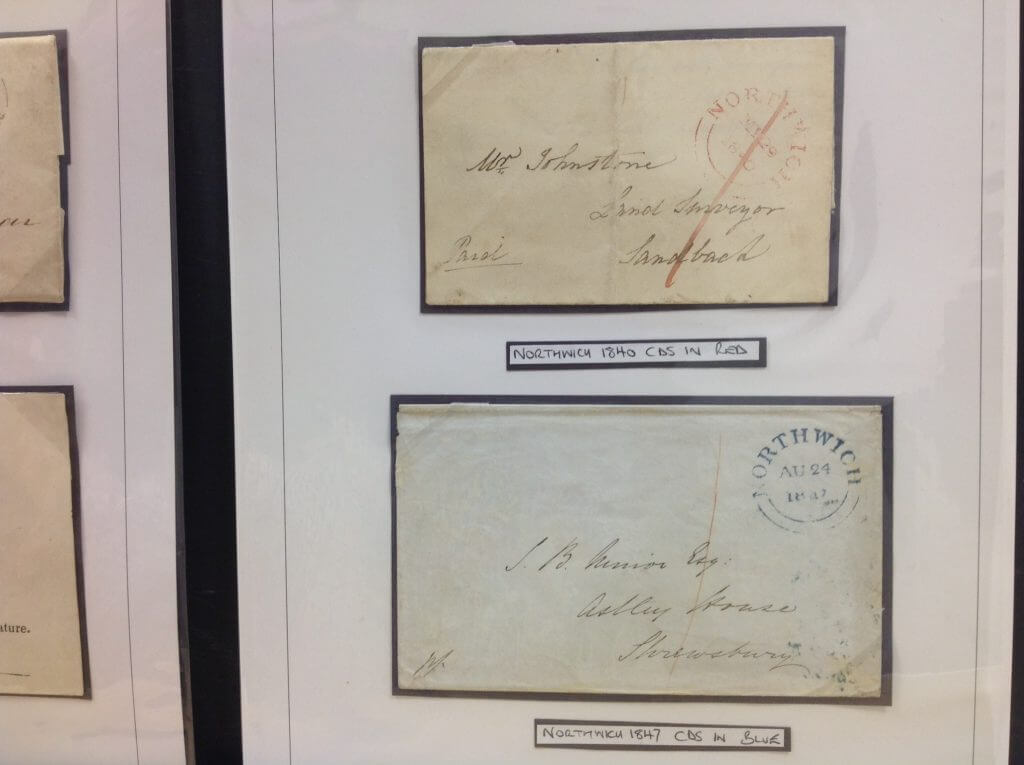 NORTHWICH
29
Mr Johnstone
Land Surveyor
Paid
Sandbach
NORTHWICH 1840 CDS IN RED
NORTHWICH
AU 24
1847
Esq:
Astley House
Shrewsbury
NORTHWICH 1847 CDS IN BLUE
ature.